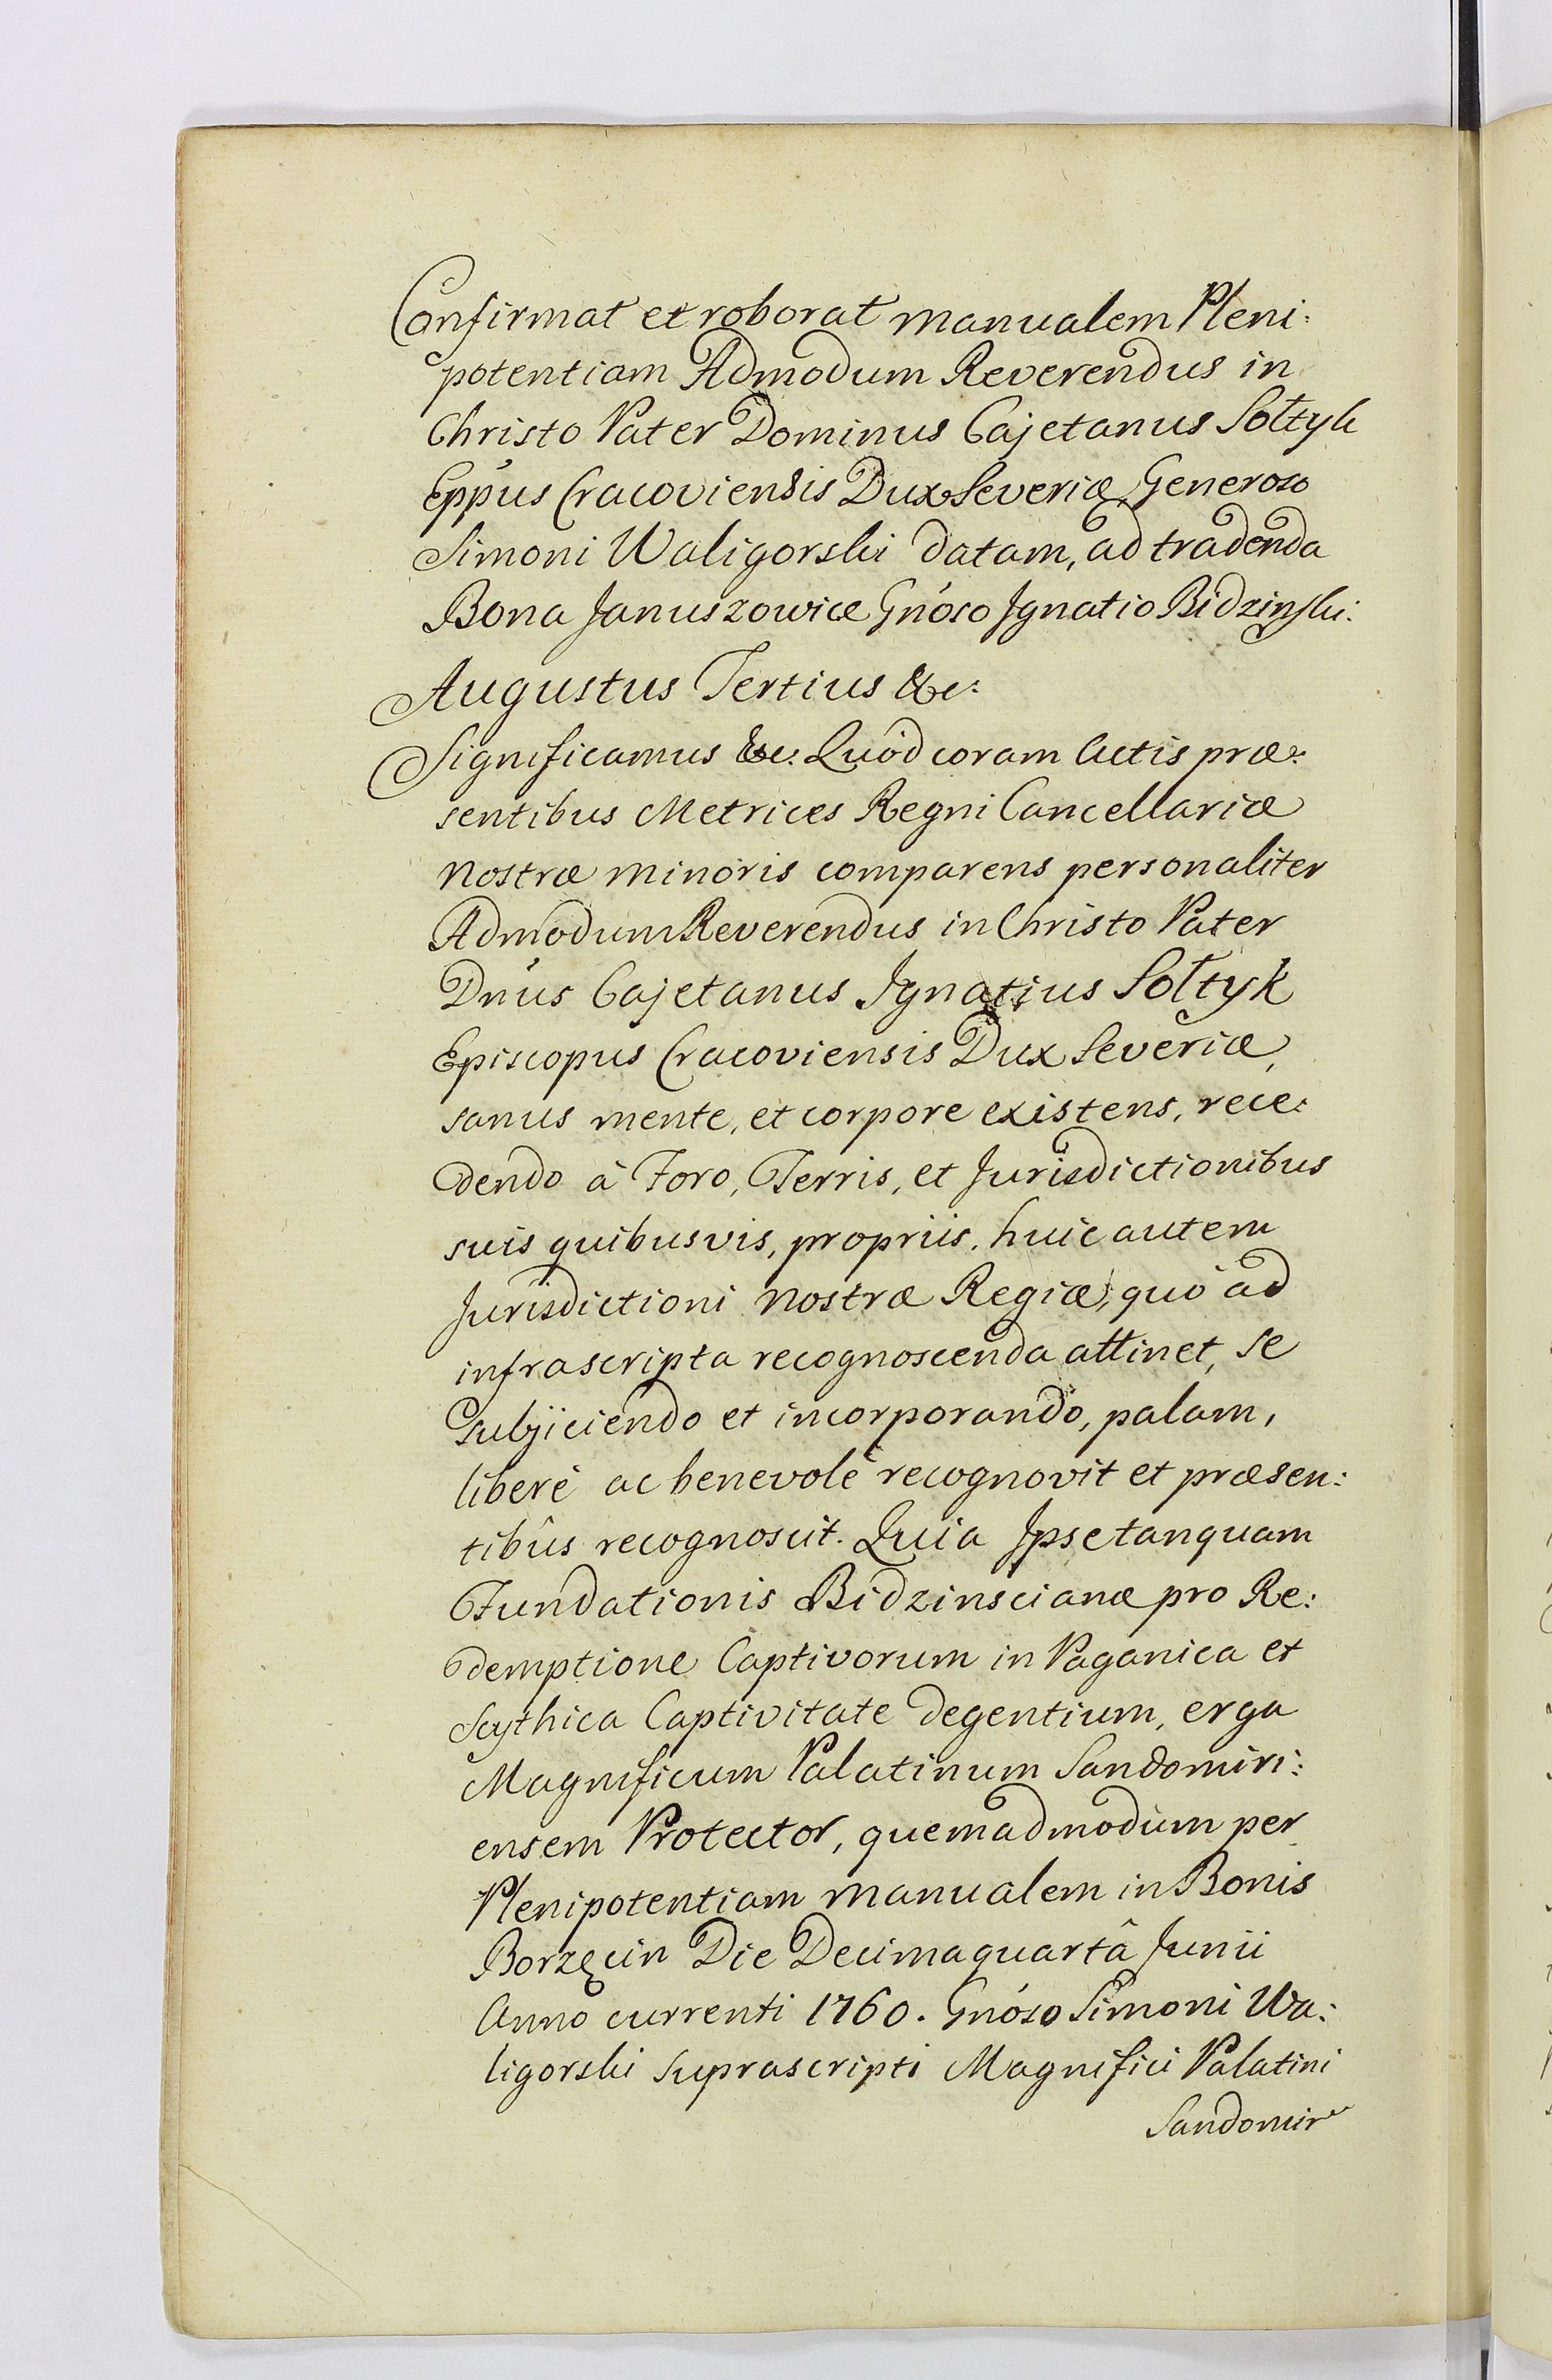 Confirmat et roborat manualem Pleni:
potentiam Admodum Reverendus in
Christo Pater Dominus Cajetanus Sołtyk
Eppus Cracoviensis Dux Severiæ Generoso
Simoni Waligorski datam, ad tradenda
Bona Januszowice Gnoso Ignatio Bidzinski:
Augustus Tertius &c:
Significamus &c: Quòd coram Actis præ:
sentibus Metrices Regni Cancellariæ
Nostræ minoris comparens personaliter
Admodum Reverendus in Christo Pater
Dnus Cajetanus Ignatius Sołtyk
Episcopus Cracoviensis Dux Severiæ,
sanus mente, et corpore existens, rece:
dendo à Foro, Terris, et Jurisdictionibus
suis quibusvis, propriis, huic autem
Jurisdictioni Nostræ Regiæ, quò ad
infrascripta recognoscenda attinet, se
subjiciendo et incorporando, palam,
liberè ac benevolè recognovit et præsen:
tibûs recognoscit. Quia Ipse tanquam
Fundationis Bidzinscianæ pro Re:
demptione Captivorum in Paganica et
Scythica Captivitate degentium, erga
Magnificum Palatinum Sandomiri:
ensem Protector, quemadmodum per
Plenipotentiam manualem in Bonis
Borzęcin Die Decimaquartâ Junii
Anno currenti 1760. Gnóso Simoni Wa:
ligorski suprascripti Magnifici Palatini
Sandomir